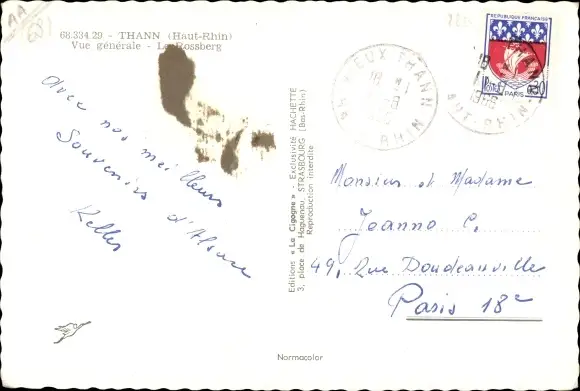 68.334.29 - THANN (Haut-Rhin)
Vue générale - Le Rossberg
Avec nos meilleurs
Souvenirs d'Alsace
Keller
Editions « La Cigogne » - Exclusivité HACHETTE
3, place de Haguenau, STRASBOURG (Bas-Rhin)
Reproduction interdite
VIEUX THANN
RHIN
REPUBLIQUE FRANÇAISE
POSTES
PARIS
0,30
THANN
HAUT-RHIN
Monsieur et Madame
Joanno C.
49, Rue Doudeauville
Paris 18e
Normacolor